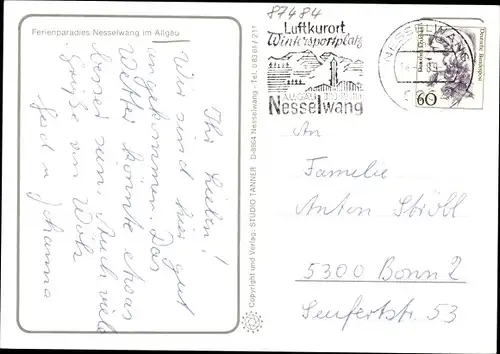 Ferienparadies Nesselwang im Allgäu
Ihr Lieben!
Wir sind hier gut
angekommen. Das
Wetter könnte etwas
besser sein. Auch viele
Grüße von
Gerd u Johanna
Copyright und Verlag: STUDIO TANNER D-8964 Nesselwang - Tel. 08361/211
87484
Luftkurort
Wintersportplatz
ALLGÄU
Nesselwang
NESSELWANG
Deutsche Bundespost
60
An
Familie
Anton Ströbl
5300 Bonn 2
Seufertstr. 53